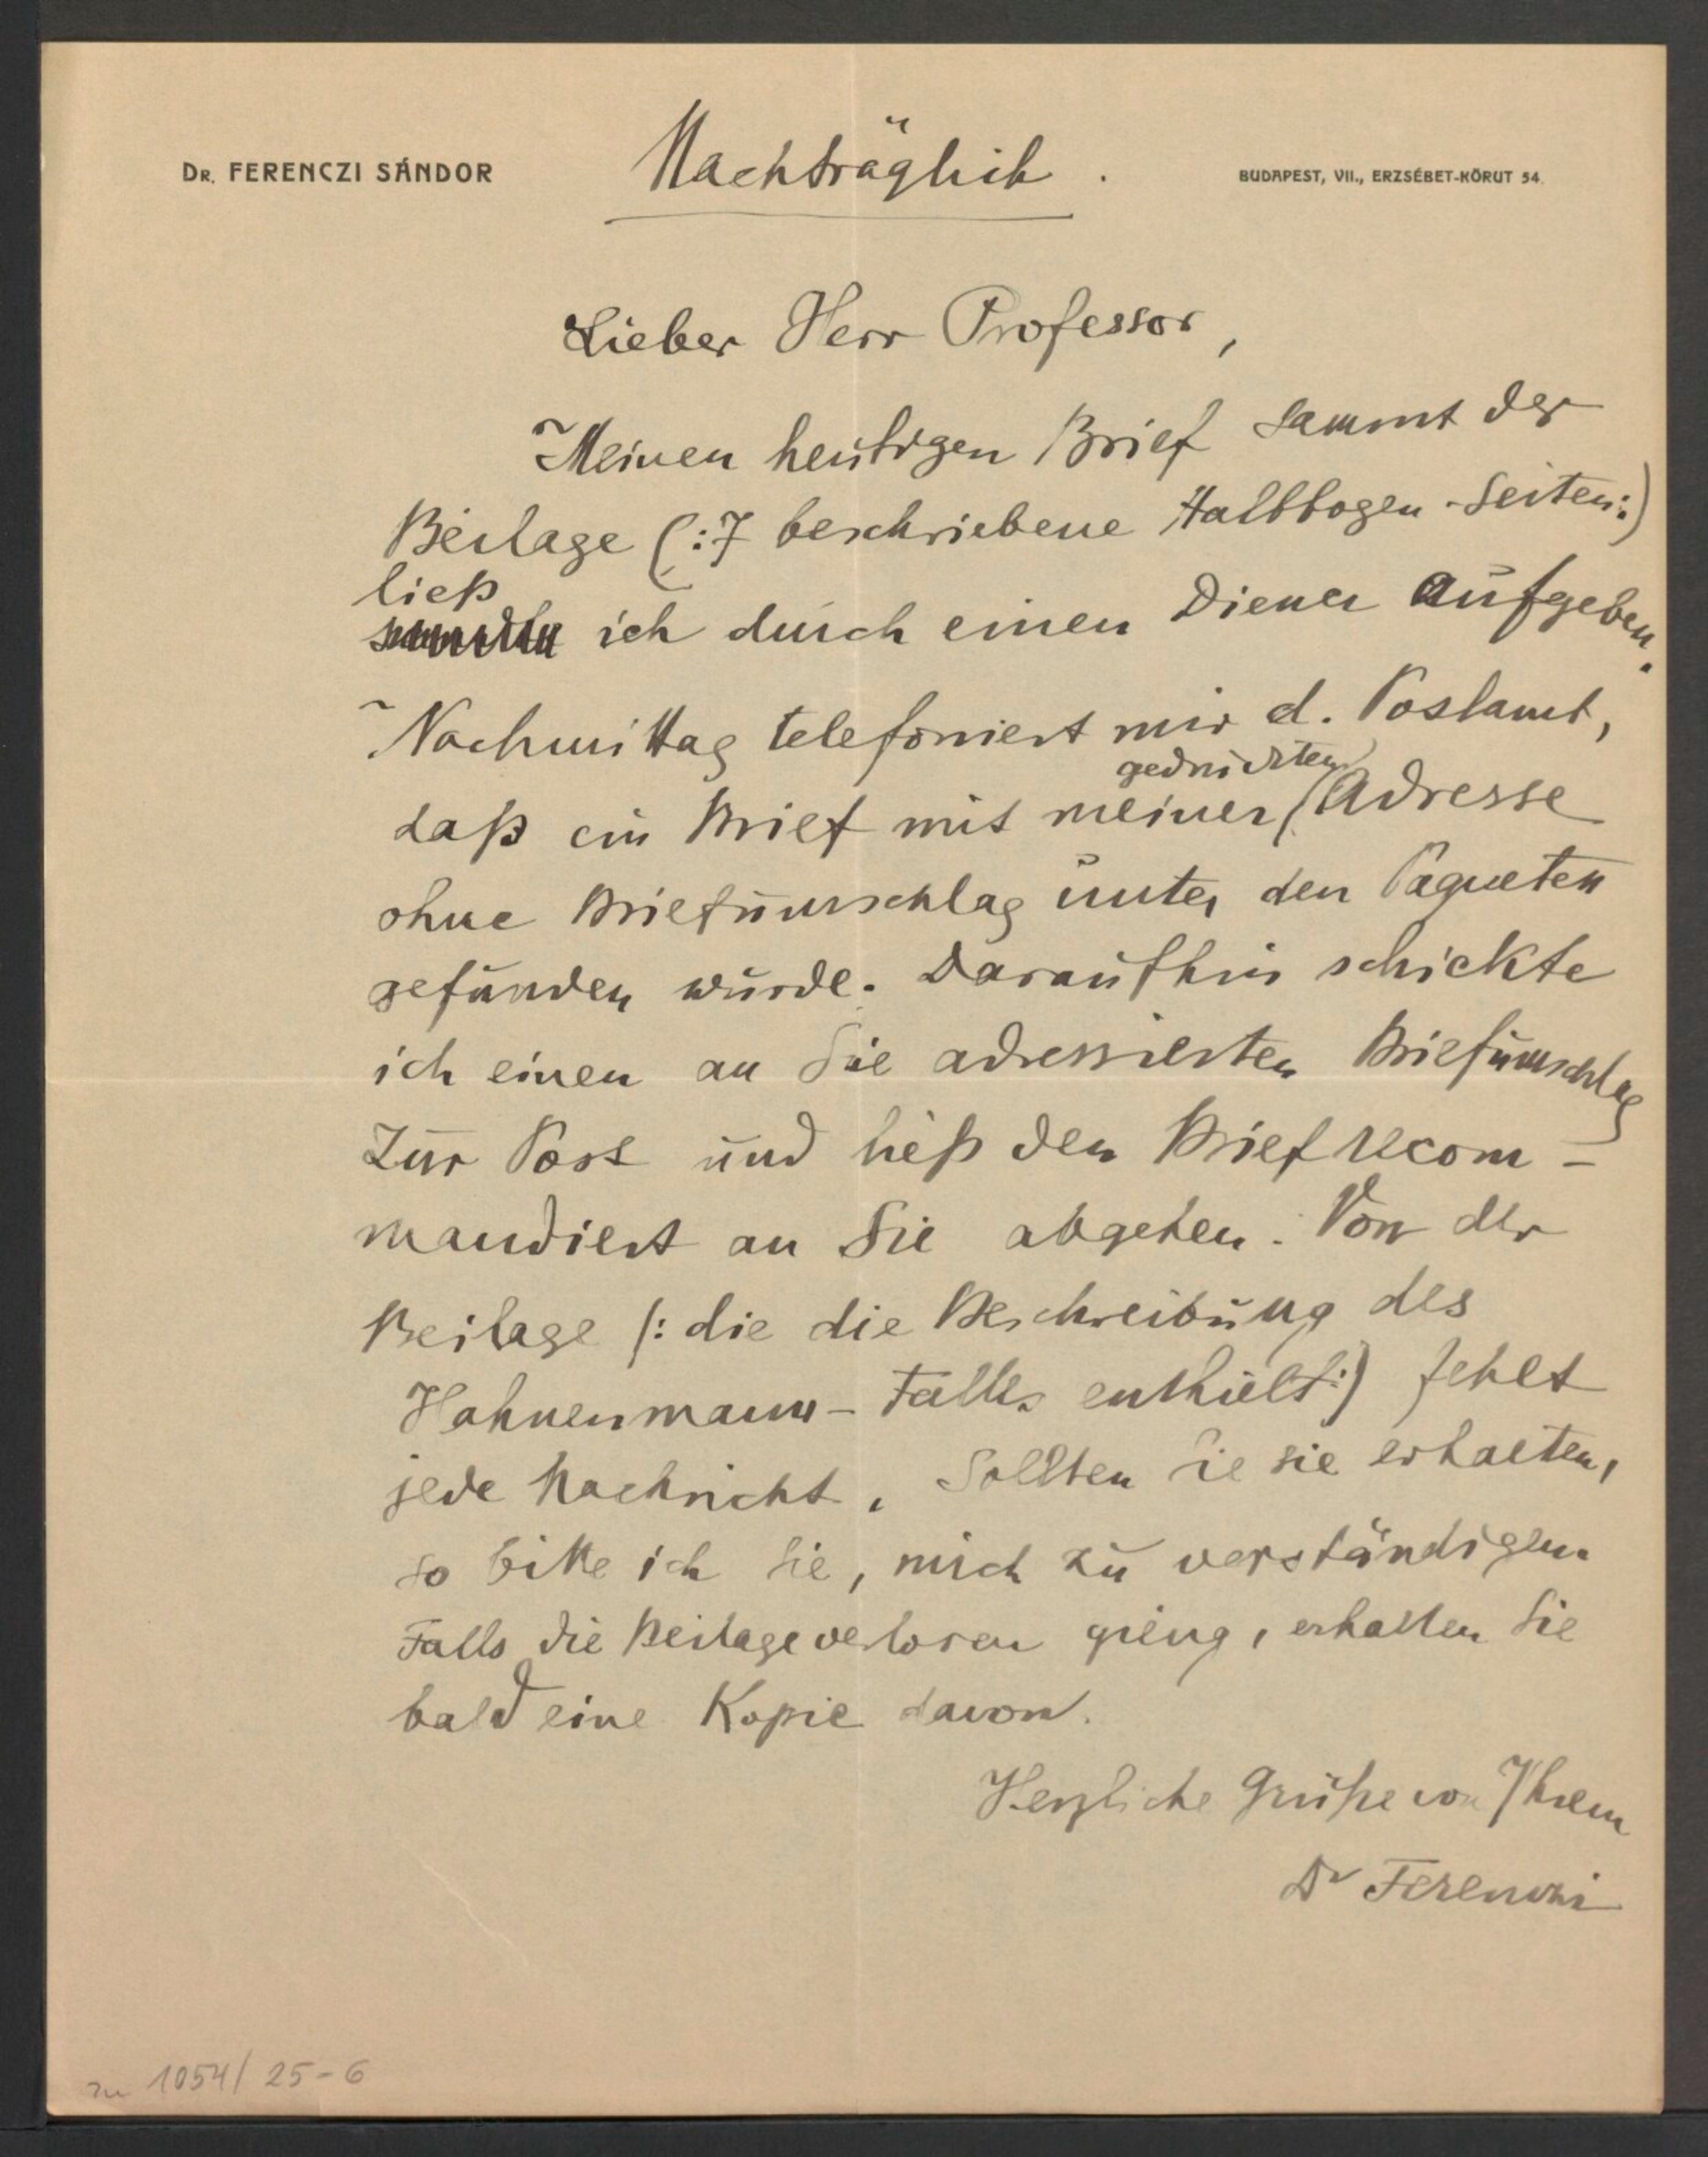 DR. FERENCZI SÁNDOR
Nachträglich.
BUDAPEST, VII., ERZSÉBET-KÖRUT 54.
Lieber Herr Professor,
Meinen heutigen Brief sammt der
Beilage (:7 beschriebene Halbbogen-Seiten:)
ließ
ich durch einen Diener aufgeben.
Nachmittag telefoniert mir d. Postamt,
gedruckten
daß ein Brief mit meiner Adresse
ohne Briefumschlag unter den Paqueten
gefunden wurde. Daraufhin schickte
ich einen an Sie adressierten Briefumschlag
zur Post und ließ den Brief recom-
mandiert an Sie abgehen. Von der
Beilage (: die die Beschreibung des
Hahnenmann-Falles enthielt:) fehlt
jede Nachricht. Sollten Sie sie erhalten,
so bitte ich Sie, mich zu verständigen.
Falls die Beilage verloren gieng, erhalten Sie
bald eine Kopie davon.
Herzliche Grüße von Ihrem
Dr Ferenczi
zu 1054/25-6